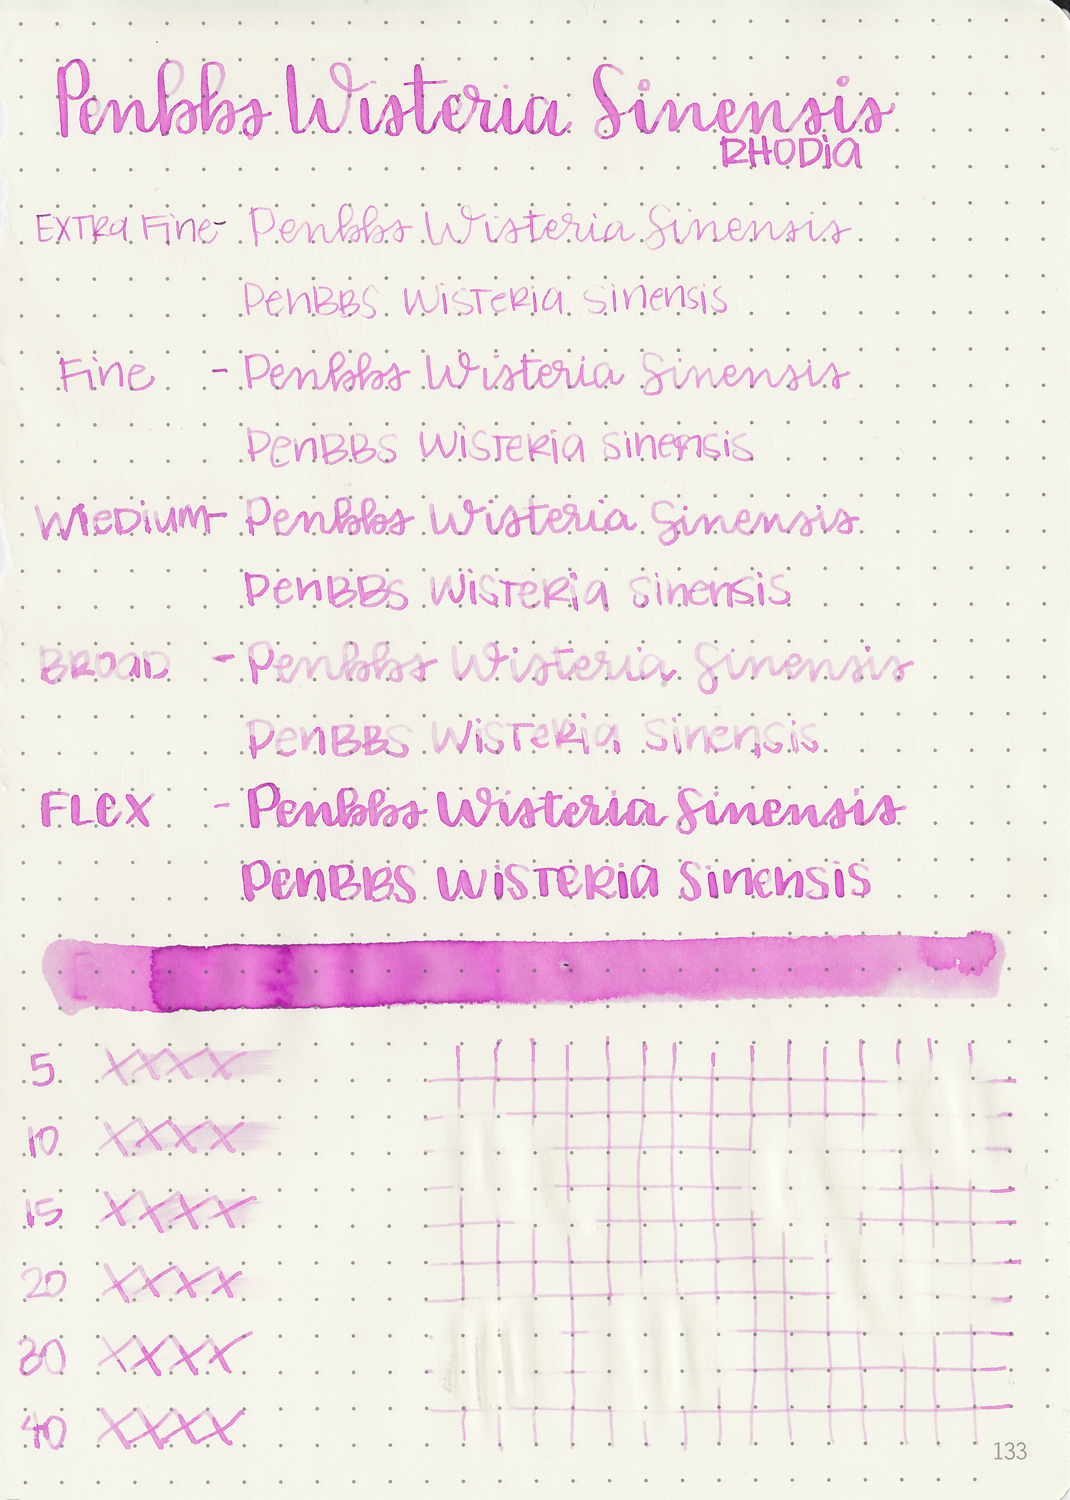 Penbbs Wisteria Sinensis
RHODIA
EXTRA Fine - Penbbs Wisteria Sinensis
PenBBS WiSTERiA Sinensis
Fine - Penbbs Wisteria Sinensis
PenBBS WiSTERiA Sinensis
MeDium - Penbbs Wisteria Sinensis
PenBBS WiSTERiA Sinensis
BROAD - Penbbs Wisteria Sinensis
PenBBS WiSTeRiA Sinensis
FLEX - Penbbs Wisteria Sinensis
PenBBS WiSTERiA Sinensis
5 XXXX
10 XXXX
15 XXXX
20 XXXX
30 XXXX
40 XXXX
133